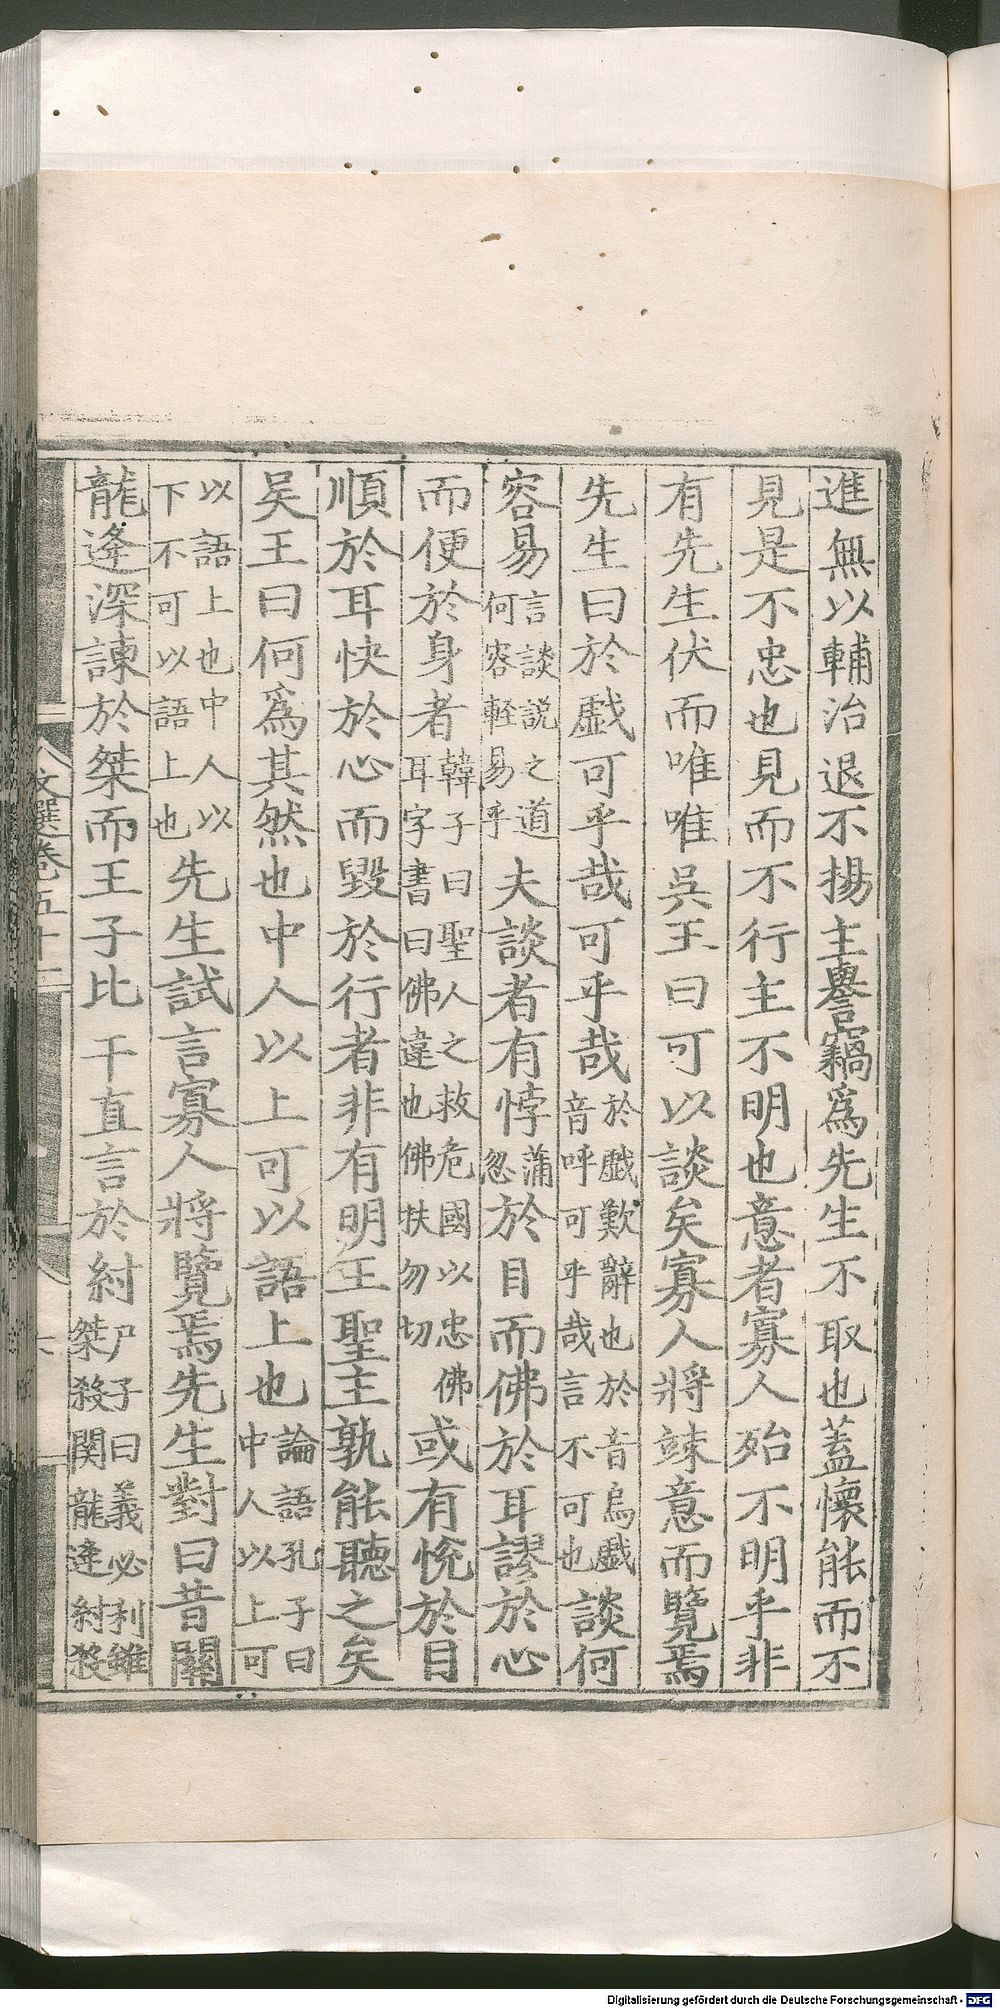 進無以輔治退不揚主譽竊爲先生不取也蓋懷能而不
見是不忠也見而不行主不明也意者寡人殆不明乎非
有先生伏而唯唯吳王曰可以談矣寡人將竦意而覽焉
先生曰於戲可乎哉可乎哉於戲歎辭也於音烏戲音呼可乎哉言不可也談何
容易言談說之道何容輕易乎夫談者有悖蒲忽於目而佛於耳謬於心
而便於身者韓子曰聖人之救危國以忠佛耳字書曰佛違也佛扶勿切或有悅於目
順於耳快於心而毀於行者非有明王聖主孰能聽之矣
吳王曰何爲其然也中人以上可以語上也論語孔子曰中人以上可
以語上也中人以下不可以語上也先生試言寡人將覽焉先生對曰昔關
龍逢深諫於桀而王子比干直言於紂尸子曰義必利雖桀殺関龍逢紂殺
文選卷五十一
Digitalisierung gefördert durch die Deutsche Forschungsgemeinschaft - DFG